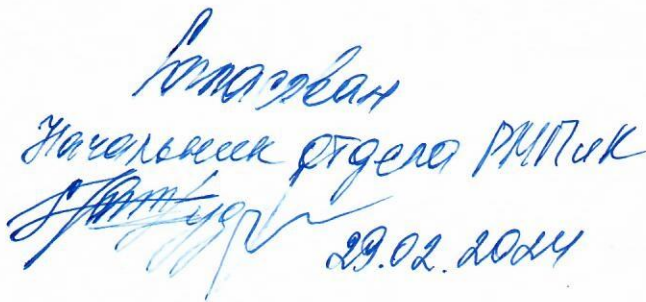 Согласован
Начальник отдела РМПиК
29.02.2024